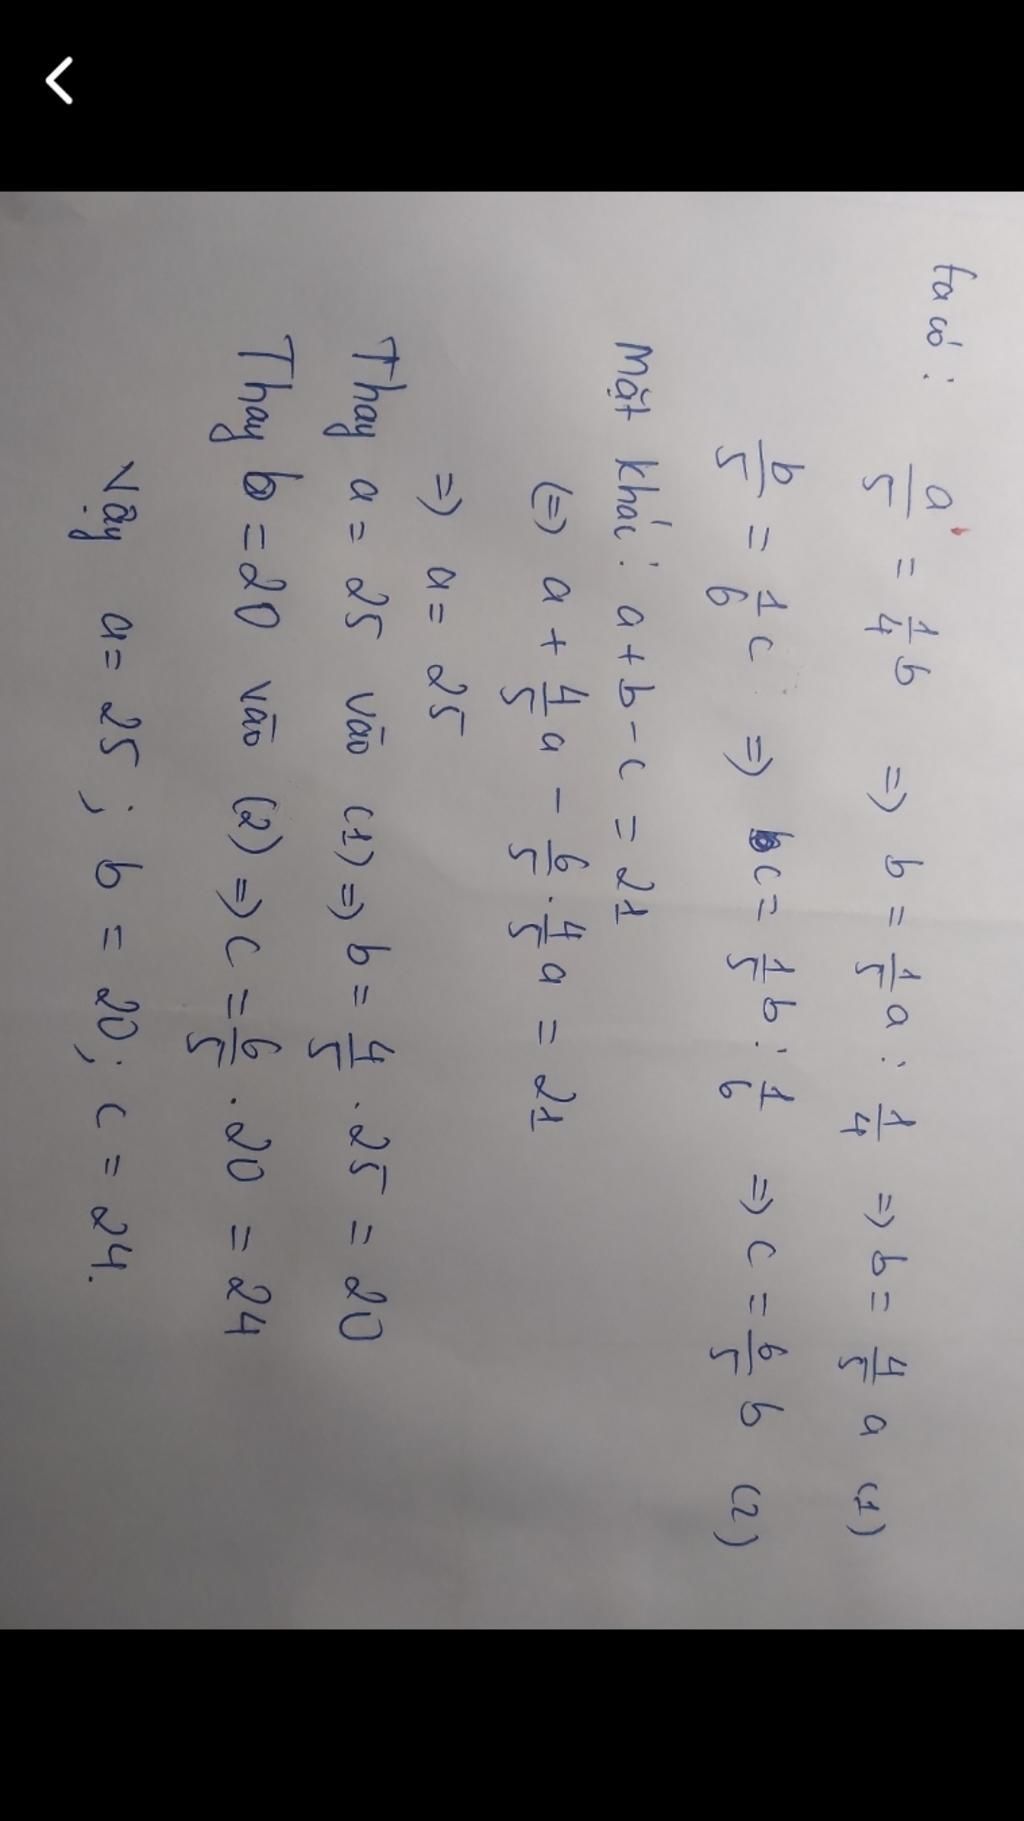 ta có: a/5 = 1/4 b => b = 1/5 a : 1/4 => b = 4/5 a (1)
b/5 = 1/6 c => c = 1/5 b : 1/6 => c = 6/5 b (2)
Mặt khác: a + b - c = 21
(=) a + 4/5 a - 6/5 . 4/5 a = 21
=) a = 25
Thay a = 25 vào (1) => b = 4/5 . 25 = 20
Thay b = 20 vào (2) => c = 6/5 . 20 = 24
Vậy a = 25 ; b = 20 ; c = 24.